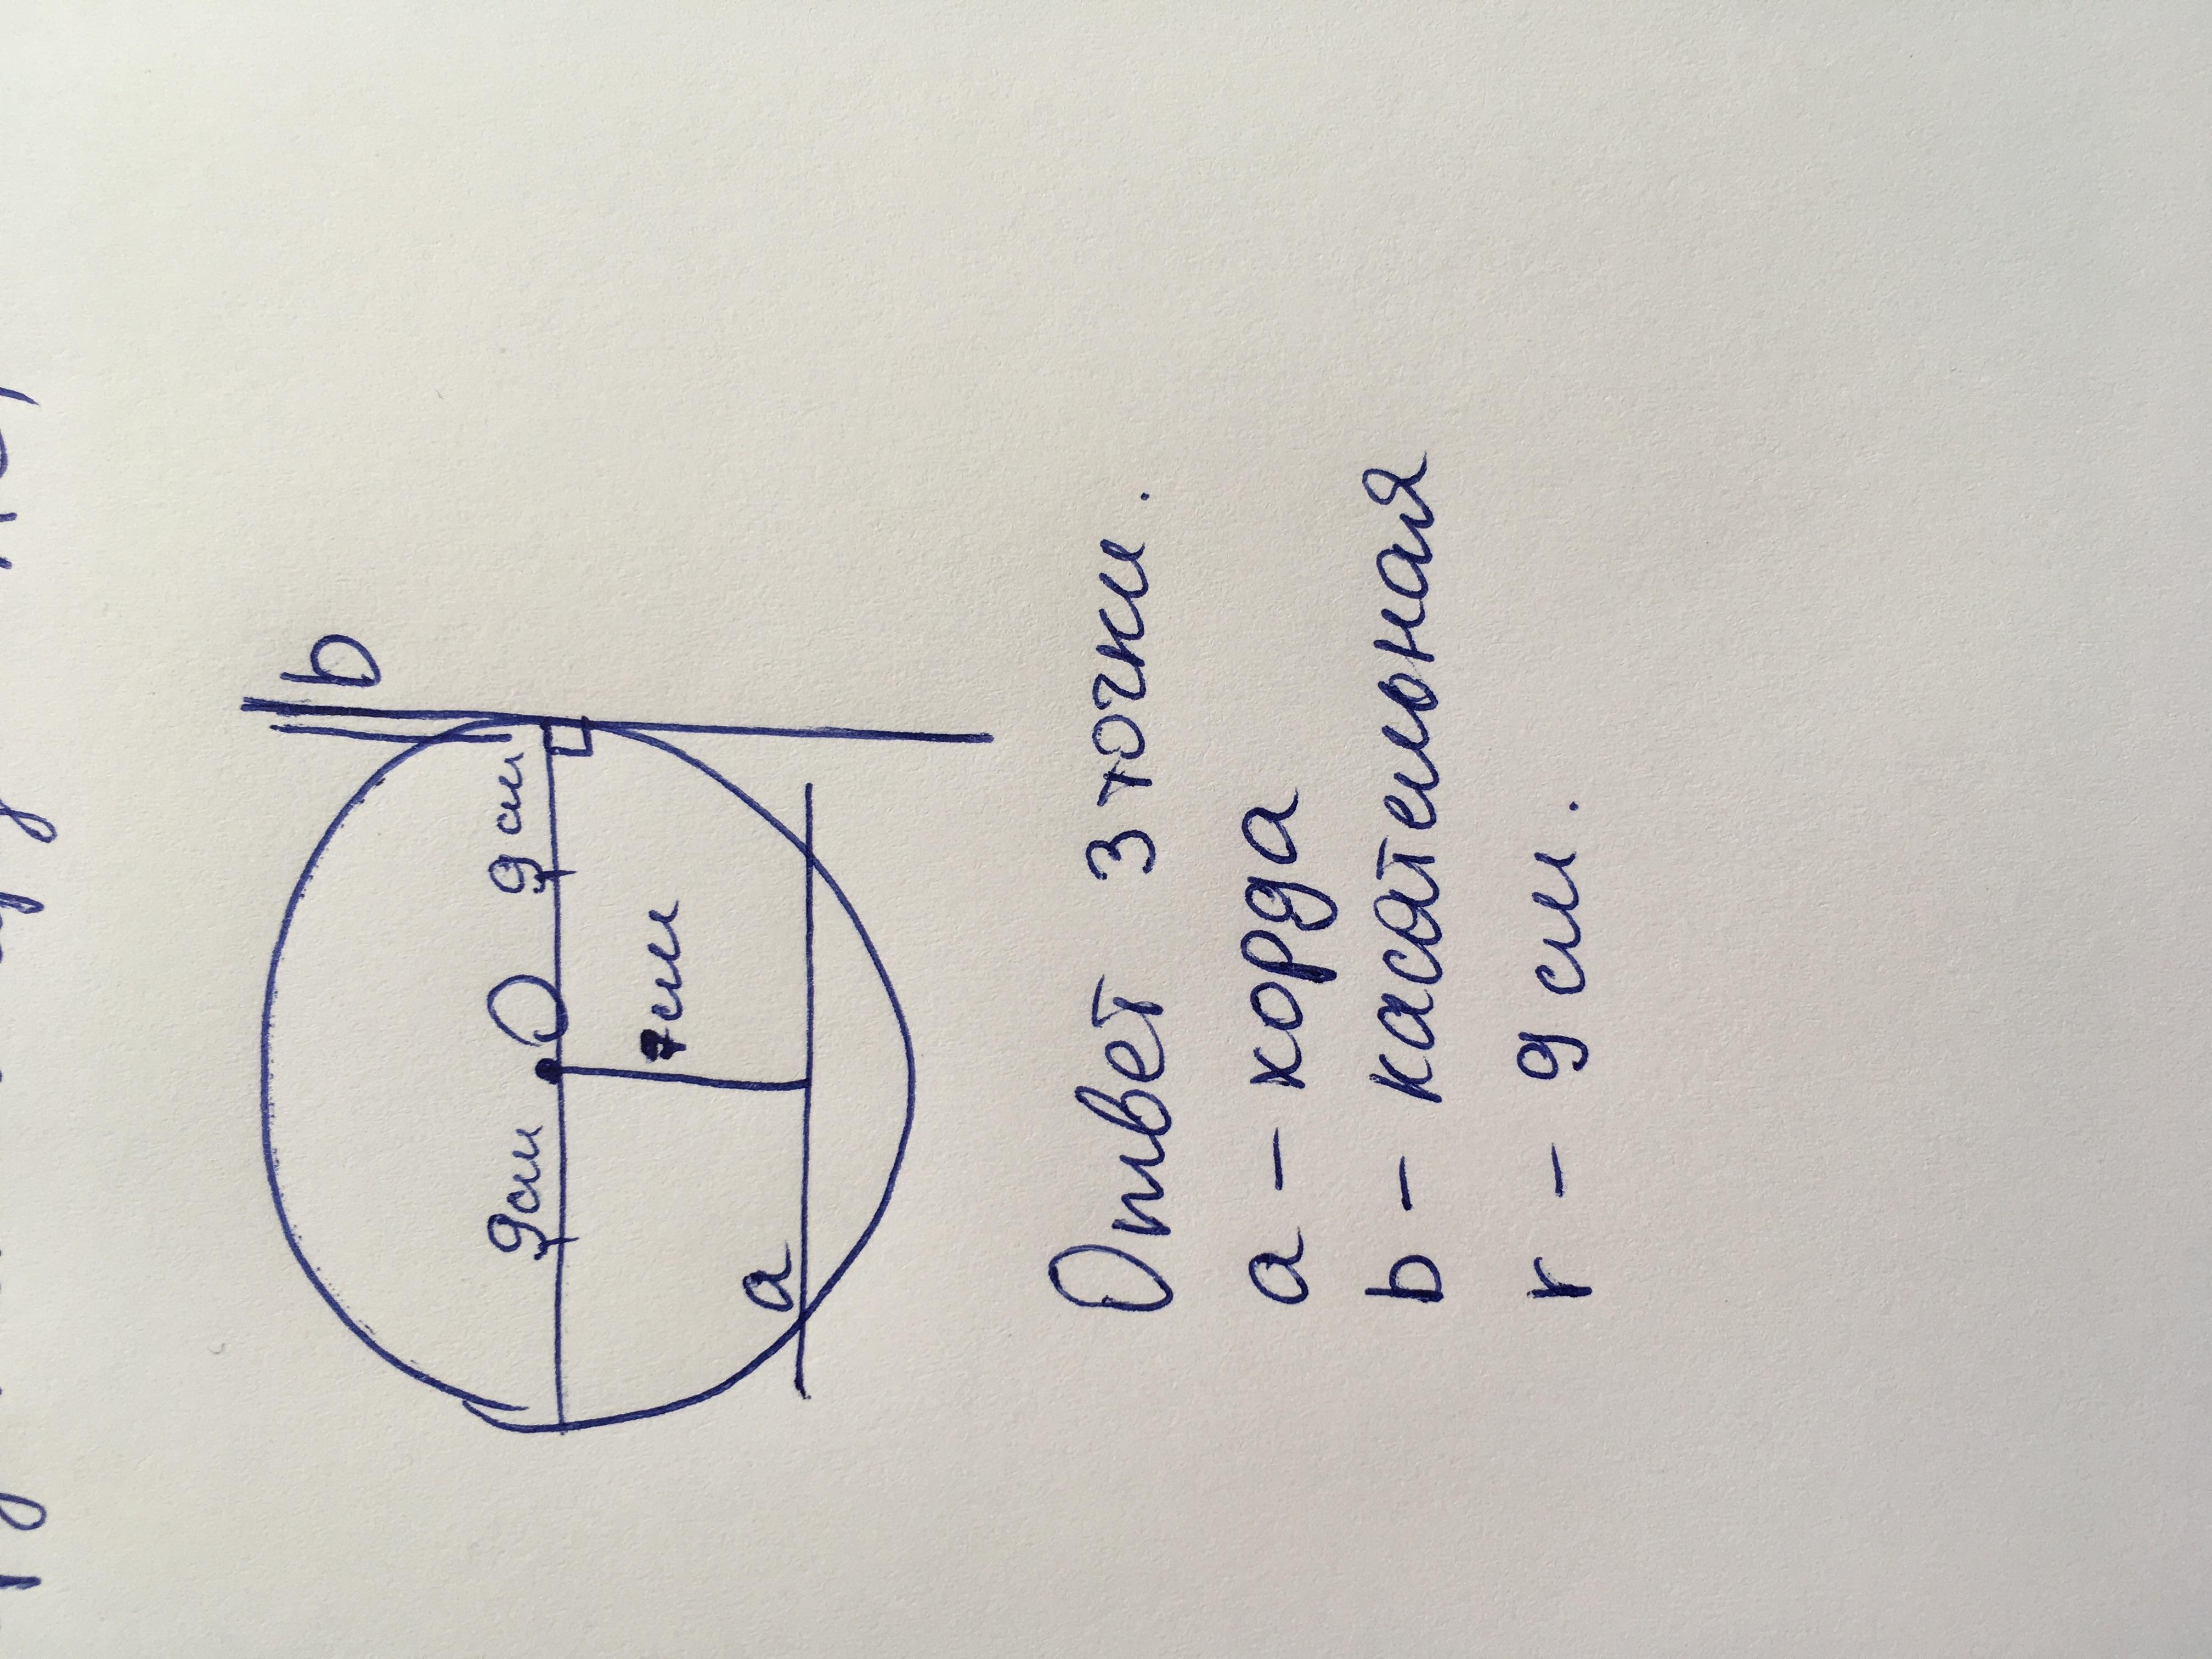 b
9 см О 9 см
7 см
a
Ответ 3 точки.
a - хорда
b - касательная
r - 9 см.